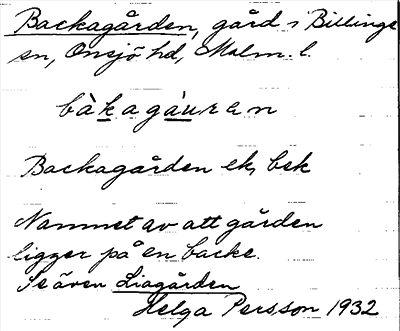 Backagården, gård i Billinge
sn, Onsjö hd, Malm. l.
bàkagáurεn
Backagården ek, bek
Namnet av att gården
ligger på en backe.
Se även Liagården
Helga Persson 1932